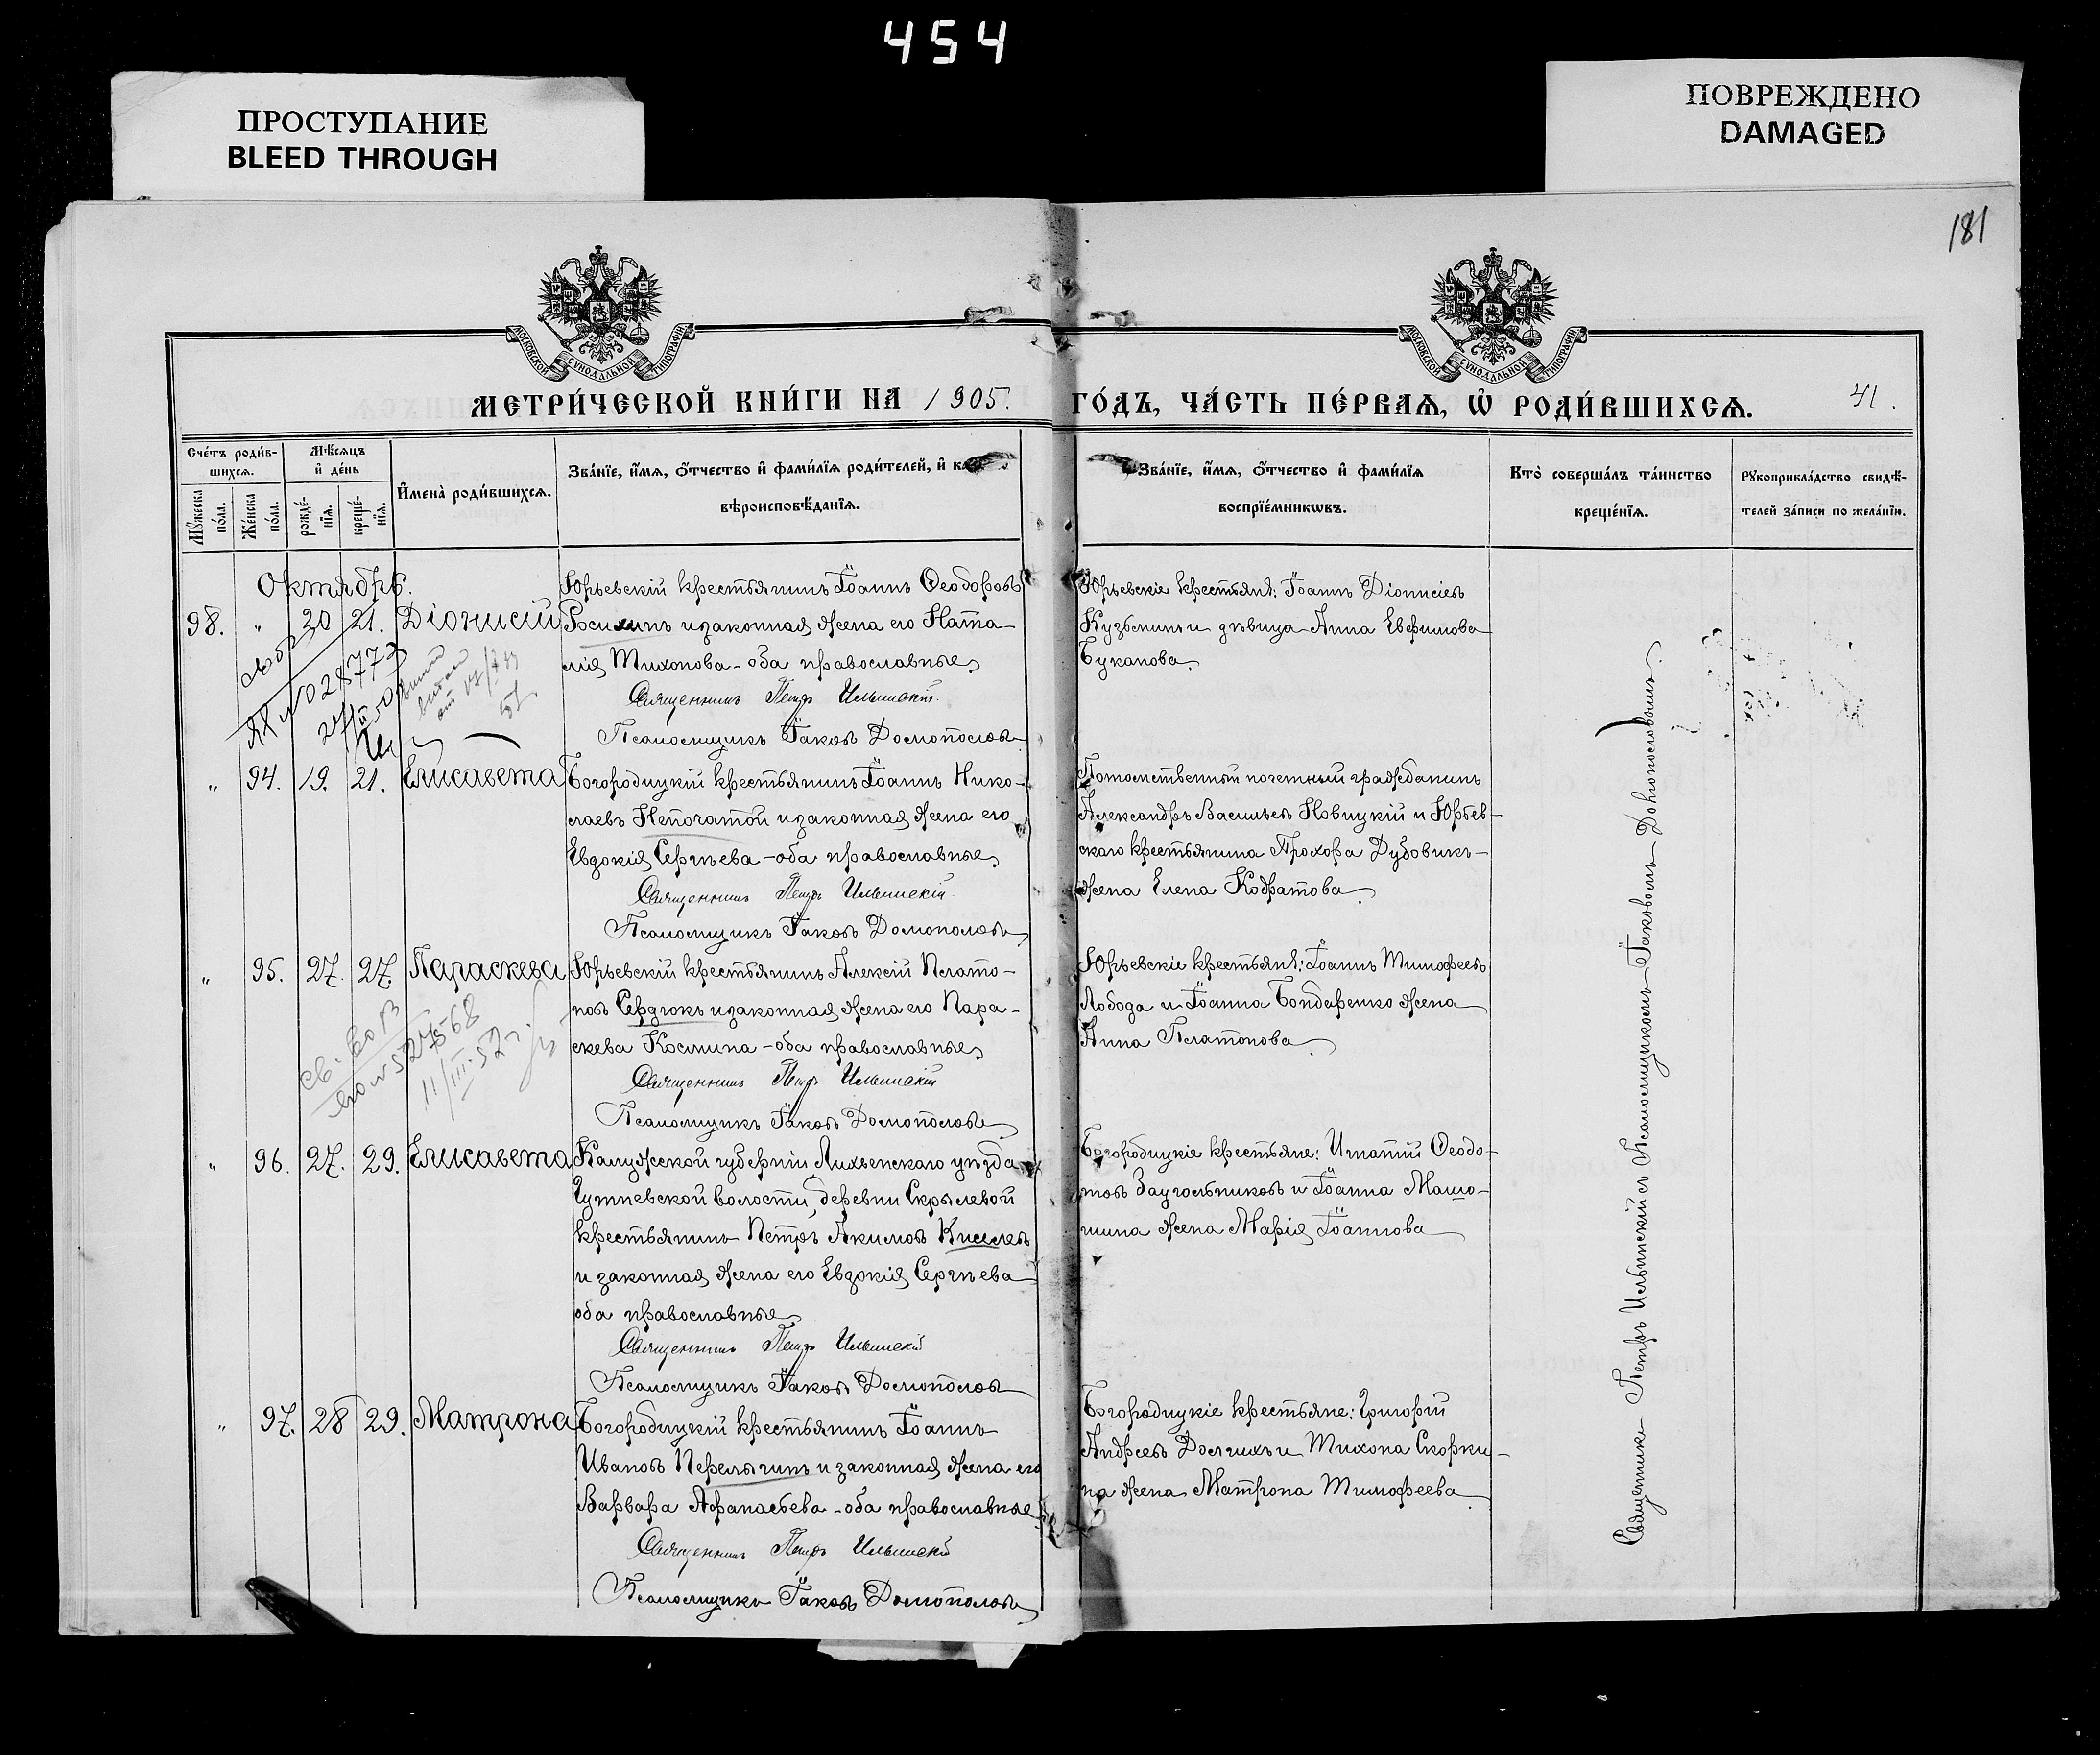 454
ПРОСТУПАНИЕ
BLEED THROUGH
ПОВРЕЖДЕНО
DAMAGED
181
МОСКОВСКОЙ СѴНОДАЛЬНОЙ ТИПОГРАФІИ
МОСКОВСКОЙ СѴНОДАЛЬНОЙ ТИПОГРАФІИ
МЕТРИ́ЧЕСКОЙ КНИ́ГИ НА 1905. ГО́ДЪ, ЧА́СТЬ ПЕ́РВАѦ, Ѡ҆ РОДИ́ВШИХСѦ. 41.
Сче́тъ роди́в-
шихсѧ.
Мꙋ́жеска по́ла.
Же́нска по́ла.
Мѣ́сѧцъ
и҆ де́нь
рожде́-
нїѧ.
креще́-
нїѧ.
И҆мена̀ роди́вшихсѧ.
Зва́нїе, и҆́мѧ, ѻ҆́тчество и҆ фами́лїѧ роди́телей, и҆
вѣроисповѣ́данїѧ.
Зва́нїе, и҆́мѧ, ѻ҆́тчество и҆ фами́лїѧ
воспрїе́мникѡвъ.
Кто̀ соверша́лъ та́инство
креще́нїѧ.
Рꙋкоприкла́дство свидѣ́-
телей за́писи по жела́нїю.
Октябрь.
98. " 20 21. Діонисій
Юрьевскій крестьянинъ Іоаннъ Ѳеодоровъ
и законная жена его Ната-
лія Тихонова - оба православные
Священникъ Петръ Ильинскій
Псаломщикъ Іаковъ Домополовъ
Юрьевскіе крестьяне: Іоаннъ Діонисіевъ
Кузьминъ и дѣвица Анна Евфимова
Буканова.
" 94. 19. 21. Елисавета
Богородицкій крестьянинъ Іоаннъ Нико-
лаевъ Непочатой и законная жена его
Евдокія Сергѣева - оба православные
Священникъ Петръ Ильинскій
Псаломщикъ Іаковъ Домополовъ
Потомственный почетный гражданинъ
Александръ Васильевъ Новицкій и Юрьев-
скаго крестьянина Прохора Дубовикъ-
жена Елена Кодратова.
" 95. 27. 27. Параскева
Юрьевскій крестьянинъ Алексій Плато-
новъ Сердюкъ и законная жена его Пара-
скева Космина - оба православные
Священникъ Петръ Ильинскій
Псаломщикъ Іаковъ Домополовъ
Юрьевскіе крестьяне: Іоаннъ Тимофеевъ
Лобода и Іоанна Бондаренко жена
Анна Платонова.
11/III-52
" 96. 27. 29. Елисавета
Калужской губерніи уѣзда
волости, деревни Скрылевой
крестьянинъ Петръ Акимовъ Киселевъ
и законная жена его Евдокія Сергѣева
оба православные
Священникъ Петръ Ильинскій
Псаломщикъ Іаковъ Домополовъ
Богородицкіе крестьяне: Игнатій Ѳеодо-
товъ Заугольниковъ и Іоанна Машо-
шина жена Марія Іоаннова
" 97. 28 29. Матрона
Богородицкій крестьянинъ Іоаннъ
Ивановъ Перелыгинъ и законная жена его
Варвара Афанасьева - оба православные
Священникъ Петръ Ильинскій
Псаломщикъ Іаковъ Домополовъ
Богородицкіе крестьяне: Григорій
Андреевъ Долгихъ и Тихона Скорки-
на жена Матрона Тимофеева
Священникъ Петръ Ильинскій съ Псаломщикомъ Іаковомъ